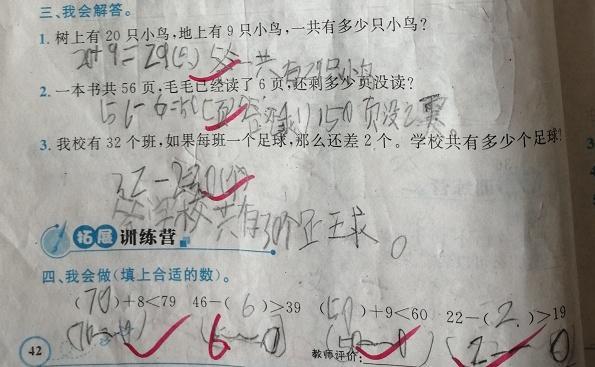 三、我会解答。
1. 树上有 20 只小鸟,地上有 9 只小鸟,一共有多少只小鸟?
20+9=29(只) 答:一共有29只小鸟
2. 一本书共 56 页,毛毛已经读了 6 页,还剩多少页没读?
56-6=50(页) 页没
3. 我校有 32 个班,如果每班一个足球,那么还差 2 个。学校共有多少个足球?
32-2=30(个)
答:学校共有30个足球。
拓展训练营
四、我会做(填上合适的数)。
(70)+8<79 46-(6)>39 (50)+9<60 22-(2)>19
(6—0) (50—0) (2—0)
42 教师评价: